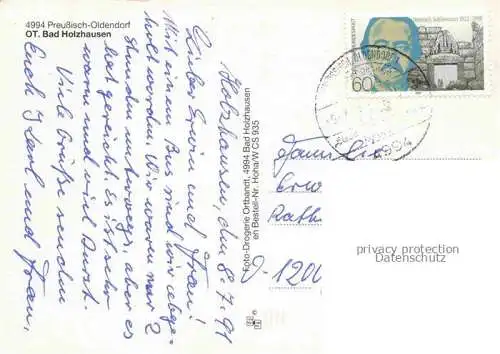 4994 Preußisch-Oldendorf
OT. Bad Holzhausen
Holzhausen, den 8.7.91
Lieber Erwin und Frau!
Mit einem Bus sind wir abge-
holt worden. Wir waren nur 2
Stunden unterwegs, aber es
hat gereicht. Es ist sehr
warm und viel Durst.
Viele Grüße senden
Euch Karl und Frau.
Foto-Drogerie Ortbandt, 4994 Bad Holzhausen
en Bestell-Nr. Hoha/W CS 935
Heinrich Schliemann 1822-1890
60
4994
Familie
Erw
Rath
D-1200
privacy protection
Datenschutz